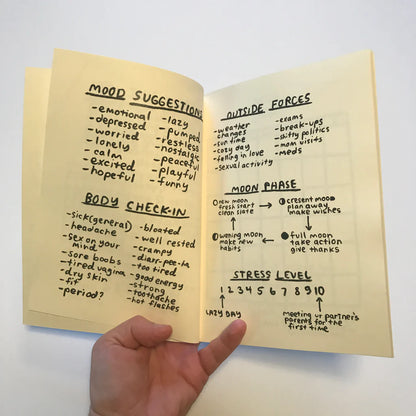 MOOD SUGGESTIONS
-emotional
-depressed
-worried
-lonely
-calm
-excited
-hopeful
-lazy
-pumped
-restless
-nostalgic
-peaceful
-playful
-funny
BODY CHECK-IN
-sick(general)
-headache
-sex on your
mind
-sore boobs
-tired vagina
-dry skin
-fit
-period?
-bloated
-well rested
-crampy
-diarr-pee-ta
-too tired
-good energy
-strong
-toothache
-hot flashes
OUTSIDE FORCES
-weather
changes
-fun time
-cozy day
-falling in love
-sexual activity
-exams
-break-ups
-shitty politics
-mom visits
-meds
MOON PHASE
new moon
fresh start
clean slate
present moon
plan away
make wishes
waning moon
make new
habits
full moon
take action
give thanks
STRESS LEVEL
1 2 3 4 5 6 7 8 9 10
LAZY DAY
meeting ur partner's
parents for the
first time